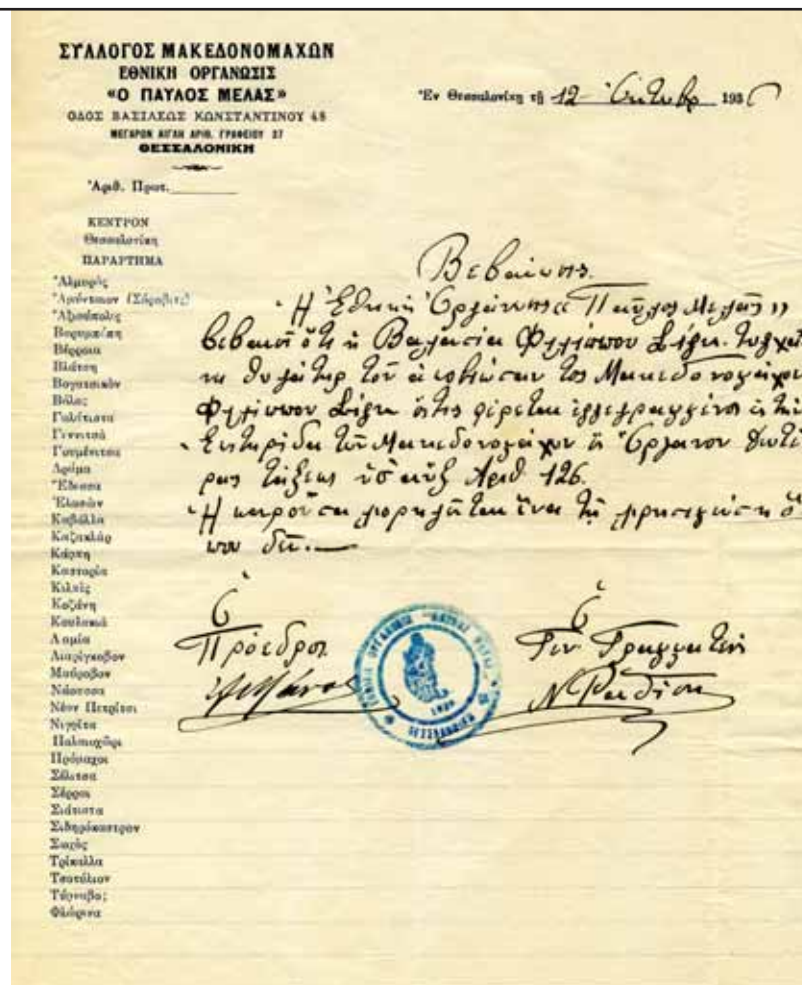 ΣΥΛΛΟΓΟΣ ΜΑΚΕΔΟΝΟΜΑΧΩΝ
ΕΘΝΙΚΗ ΟΡΓΑΝΩΣΙΣ
«Ο ΠΑΥΛΟΣ ΜΕΛΑΣ»
ΟΔΟΣ ΒΑΣΙΛΕΩΣ ΚΩΝΣΤΑΝΤΙΝΟΥ 48
ΜΕΓΑΡΟΝ ΑΙΓΛΗ ΑΡΙΘ. ΓΡΑΦΕΙΟΥ 37
ΘΕΣΣΑΛΟΝΙΚΗ
Ἐν Θεσσαλονίκῃ τῇ 12 Ὀκτωβρ 1936
Ἀριθ. Πρωτ.
ΚΕΝΤΡΟΝ
Θεσσαλονίκη
ΠΑΡΑΡΤΗΜΑ
Ἀλμυρός
Ἀμύνταιον (Σόροβιτς)
Ἀξιούπολις
Βέρροια
Βλάτση
Βογατσικόν
Βόλος
Γαλάτιστα
Γεννιτσά
Γουμένιτσα
Δράμα
Ἔδεσσα
Ἐλασών
Καβάλλα
Καζακλάρ
Κάρπη
Καστορία
Κιλκίς
Κοζάνη
Κουλακιά
Λαμία
Λιαρίγκοβον
Μαύροβον
Νάουσσα
Νέον Πετρίτσι
Νιγρίτα
Παλαιοχῶρι
Πρόμαχοι
Σέλιτσα
Σέρραι
Σιάτιστα
Σιδηρόκαστρον
Σωχός
Τρίκαλλα
Τσοτύλιον
Τύρναβος
Φλώρινα
Βεβαίωσις
Ἡ Ἐθνική Ὀργάνωσις « Παῦλος Μελᾶς »
βεβαιοῖ ὅτι ἡ Βαλασία Φιλίππου τυγχά
νει θυγάτηρ τοῦ ἀποβιώσαντος Μακεδονομάχου
Φιλίππου ὅστις φέρεται ἐγγεγραμμένος εἰς τὴν
Ἐπετηρίδα τῶν Μακεδονομάχων ὡς Ὁργανον Δευτέ
ρας τάξεως ὑπ' αὔξ Ἀριθ 126.
Ἡ παροῦσα χορηγεῖται ἵνα τῇ χρησιμεύσῃ ὅ
που δεῖ.
Ὁ
Πρόεδρος
Ὁ
Γεν. Γραμματεύς
ΕΘΝΙΚΗ ΟΡΓΑΝΩΣΙΣ "ΠΑΥΛΟΣ ΜΕΛΑΣ"
ΘΕΣΣΑΛΟΝΙΚΗ